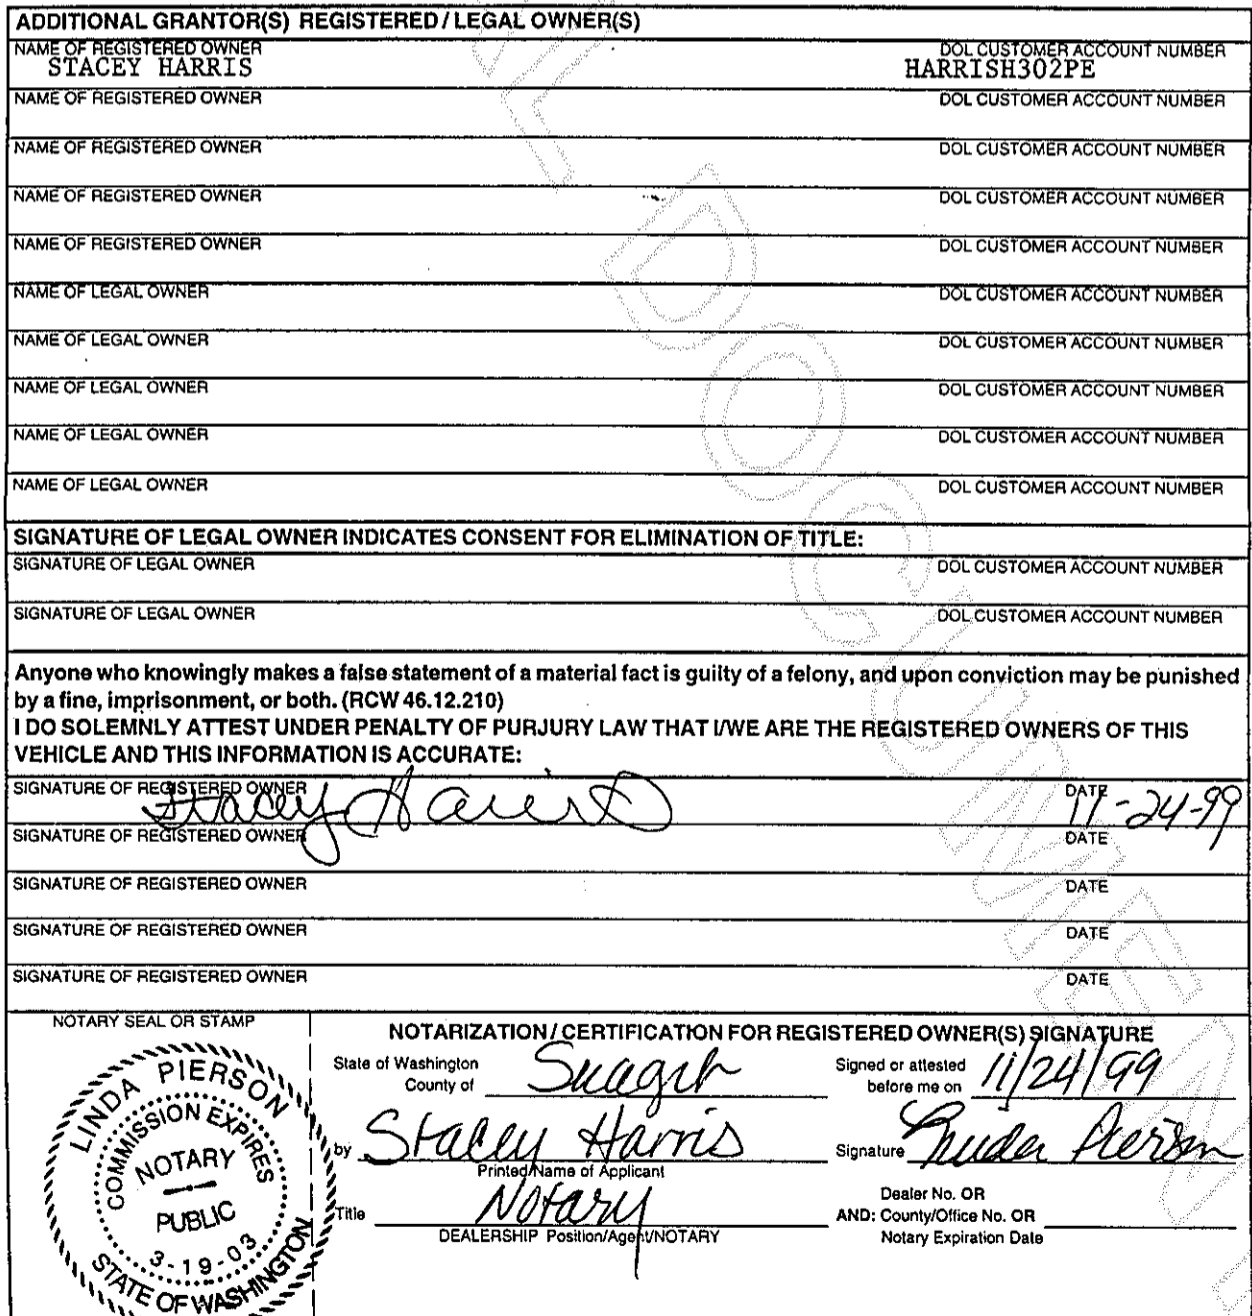 ADDITIONAL GRANTOR(S) REGISTERED / LEGAL OWNER(S)
NAME OF REGISTERED OWNER DOL CUSTOMER ACCOUNT NUMBER
STACEY HARRIS HARRISH302PE
NAME OF REGISTERED OWNER DOL CUSTOMER ACCOUNT NUMBER
NAME OF REGISTERED OWNER DOL CUSTOMER ACCOUNT NUMBER
NAME OF REGISTERED OWNER DOL CUSTOMER ACCOUNT NUMBER
NAME OF REGISTERED OWNER DOL CUSTOMER ACCOUNT NUMBER
NAME OF LEGAL OWNER DOL CUSTOMER ACCOUNT NUMBER
NAME OF LEGAL OWNER DOL CUSTOMER ACCOUNT NUMBER
NAME OF LEGAL OWNER DOL CUSTOMER ACCOUNT NUMBER
NAME OF LEGAL OWNER DOL CUSTOMER ACCOUNT NUMBER
NAME OF LEGAL OWNER DOL CUSTOMER ACCOUNT NUMBER
SIGNATURE OF LEGAL OWNER INDICATES CONSENT FOR ELIMINATION OF TITLE:
SIGNATURE OF LEGAL OWNER DOL CUSTOMER ACCOUNT NUMBER
SIGNATURE OF LEGAL OWNER DOL CUSTOMER ACCOUNT NUMBER
Anyone who knowingly makes a false statement of a material fact is guilty of a felony, and upon conviction may be punished
by a fine, imprisonment, or both. (RCW 46.12.210)
I DO SOLEMNLY ATTEST UNDER PENALTY OF PURJURY LAW THAT I/WE ARE THE REGISTERED OWNERS OF THIS
VEHICLE AND THIS INFORMATION IS ACCURATE:
SIGNATURE OF REGISTERED OWNER DATE
Stacey Harris 11-24-99
SIGNATURE OF REGISTERED OWNER DATE
SIGNATURE OF REGISTERED OWNER DATE
SIGNATURE OF REGISTERED OWNER DATE
SIGNATURE OF REGISTERED OWNER DATE
NOTARY SEAL OR STAMP
LINDA PIERSON
COMMISSION EXPIRES
NOTARY
PUBLIC
3-19-03
STATE OF WASHINGTON
NOTARIZATION / CERTIFICATION FOR REGISTERED OWNER(S) SIGNATURE
State of Washington
County of Skagit
Signed or attested
before me on 11/24/99
by Stacey Harris
Printed Name of Applicant
Signature Linda Pierson
Title Notary
DEALERSHIP Position/Agent/NOTARY
Dealer No. OR
AND: County/Office No. OR
Notary Expiration Date